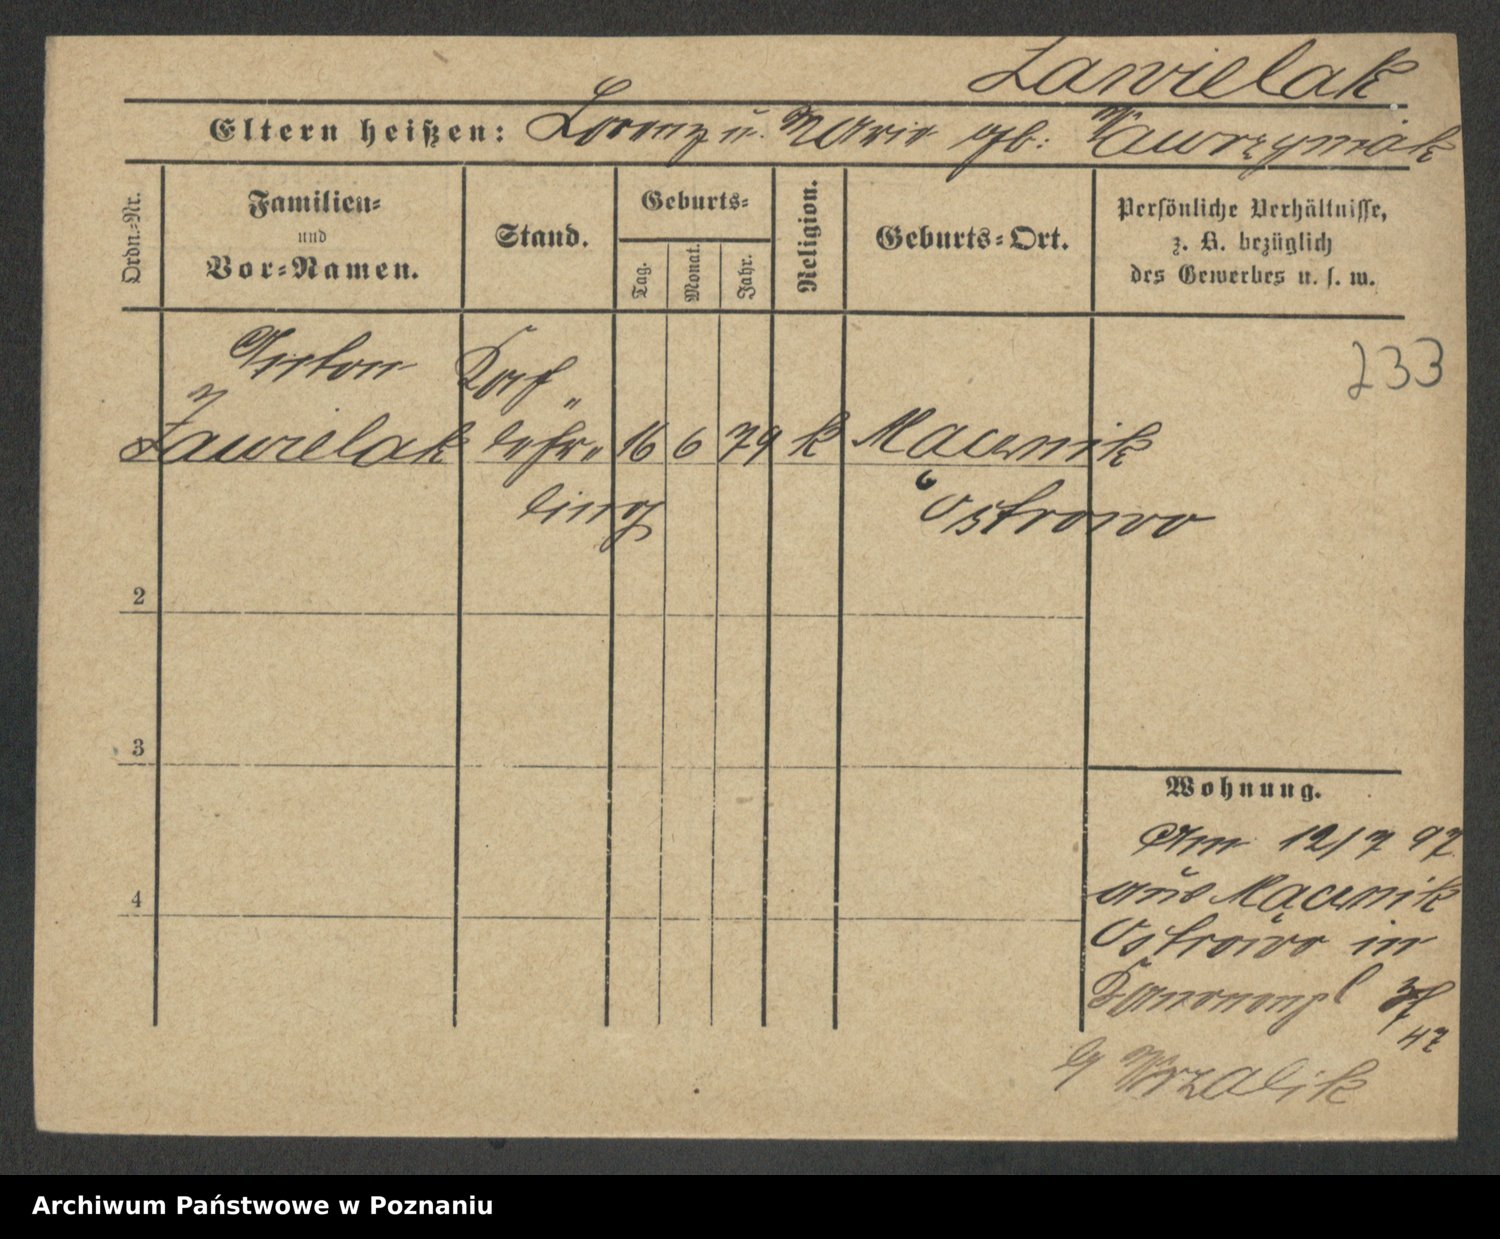 Zawielak
Eltern heißen: Lorenz u. Marie gb: Wawrzyniak
Ordn.-Nr.
Familien-
und
Vor-Namen.
Stand.
Geburts-
Tag.
Monat.
Jahr.
Religion.
Geburts-Ort.
Persönliche Verhältnisse,
z. B. bezüglich
des Gewerbes u. s. w.
233
Anton
Zawielak lehr- 16 6 79 k Macznik
ling Ostrowo
2
3
4
Wohnung.
Am 12/7 97
aus Macznik
Ostrowo in
47
Wrzalik
Archiwum Państwowe w Poznaniu